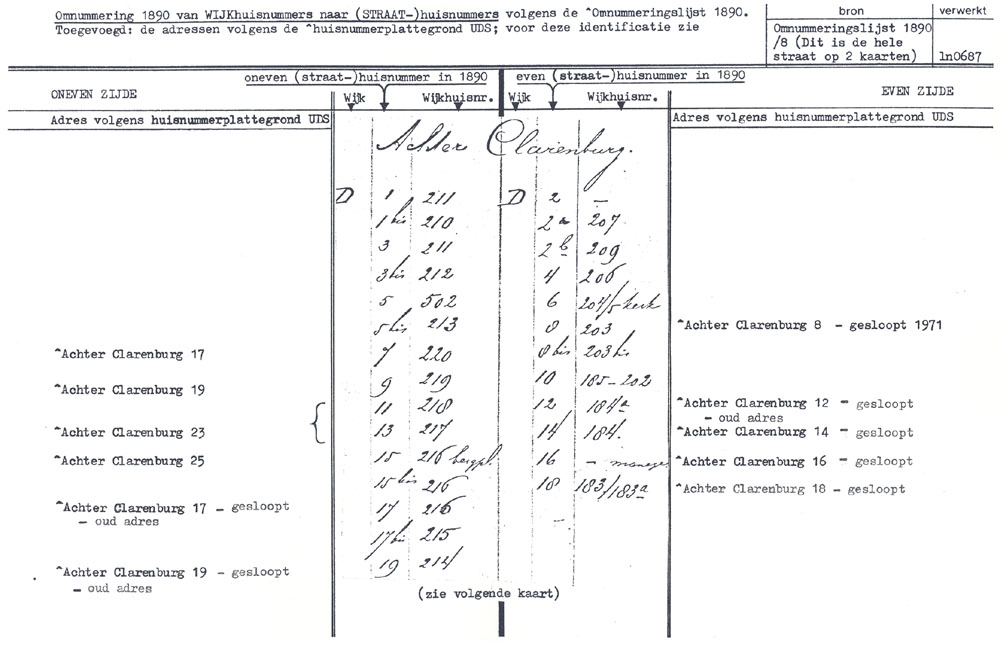 Omnummering 1890 van WIJKhuisnummers naar (STRAAT-)huisnummers volgens de ^Omnummeringslijst 1890.
Toegevoegd: de adressen volgens de ^huisnummerplattegrond UDS; voor deze identificatie zie
bron
verwerkt
Omnummeringslijst 1890
/8 (Dit is de hele
straat op 2 kaarten)
ln0687
oneven (straat-)huisnummer in 1890
even (straat-)huisnummer in 1890
ONEVEN ZIJDE
Wijk
Wijkhuisnr.
Wijk
Wijkhuisnr.
EVEN ZIJDE
Adres volgens huisnummerplattegrond UDS
Adres volgens huisnummerplattegrond UDS
Achter Clarenburg.
D 1 211 D 2 –
1 bis 210 2a 207
3 211 2b 209
3 bis 212 4 206
5 502 6 204/5 kerk
5 bis 213 8 203 ^Achter Clarenburg 8 - gesloopt 1971
^Achter Clarenburg 17 7 220 8 bis 203 bis
^Achter Clarenburg 19 9 219 10 185-202
{ 11 218 12 184a ^Achter Clarenburg 12 - gesloopt
- oud adres
^Achter Clarenburg 23 13 217 14 184. ^Achter Clarenburg 14 - gesloopt
^Achter Clarenburg 25 15 216 bergpl. 16 - manege ^Achter Clarenburg 16 - gesloopt
15 bis 216 18 183/183a ^Achter Clarenburg 18 - gesloopt
^Achter Clarenburg 17 - gesloopt 17 216
- oud adres
17 bis 215
^Achter Clarenburg 19 - gesloopt 19 214
- oud adres
(zie volgende kaart)